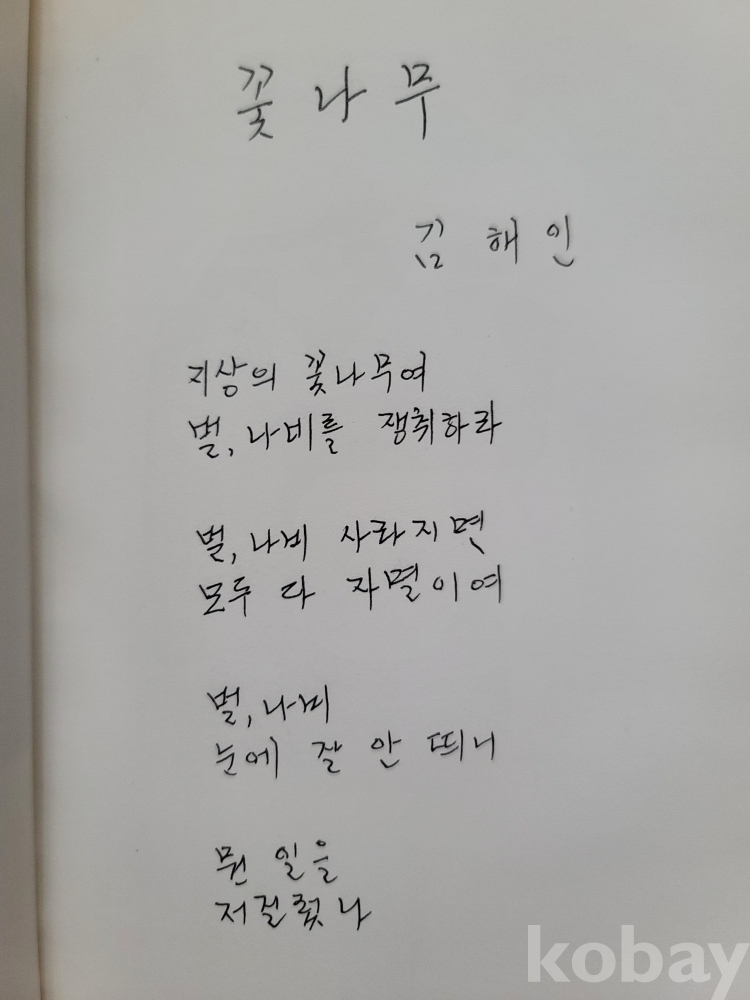 꽃나무
김해인
지상의 꽃나무여
벌, 나비를 쟁취하라
벌, 나비 사라지면
모두 다 자멸이여
벌, 나비
눈에 잘 안 띄니
뭔 일을
저질렀나
kobay